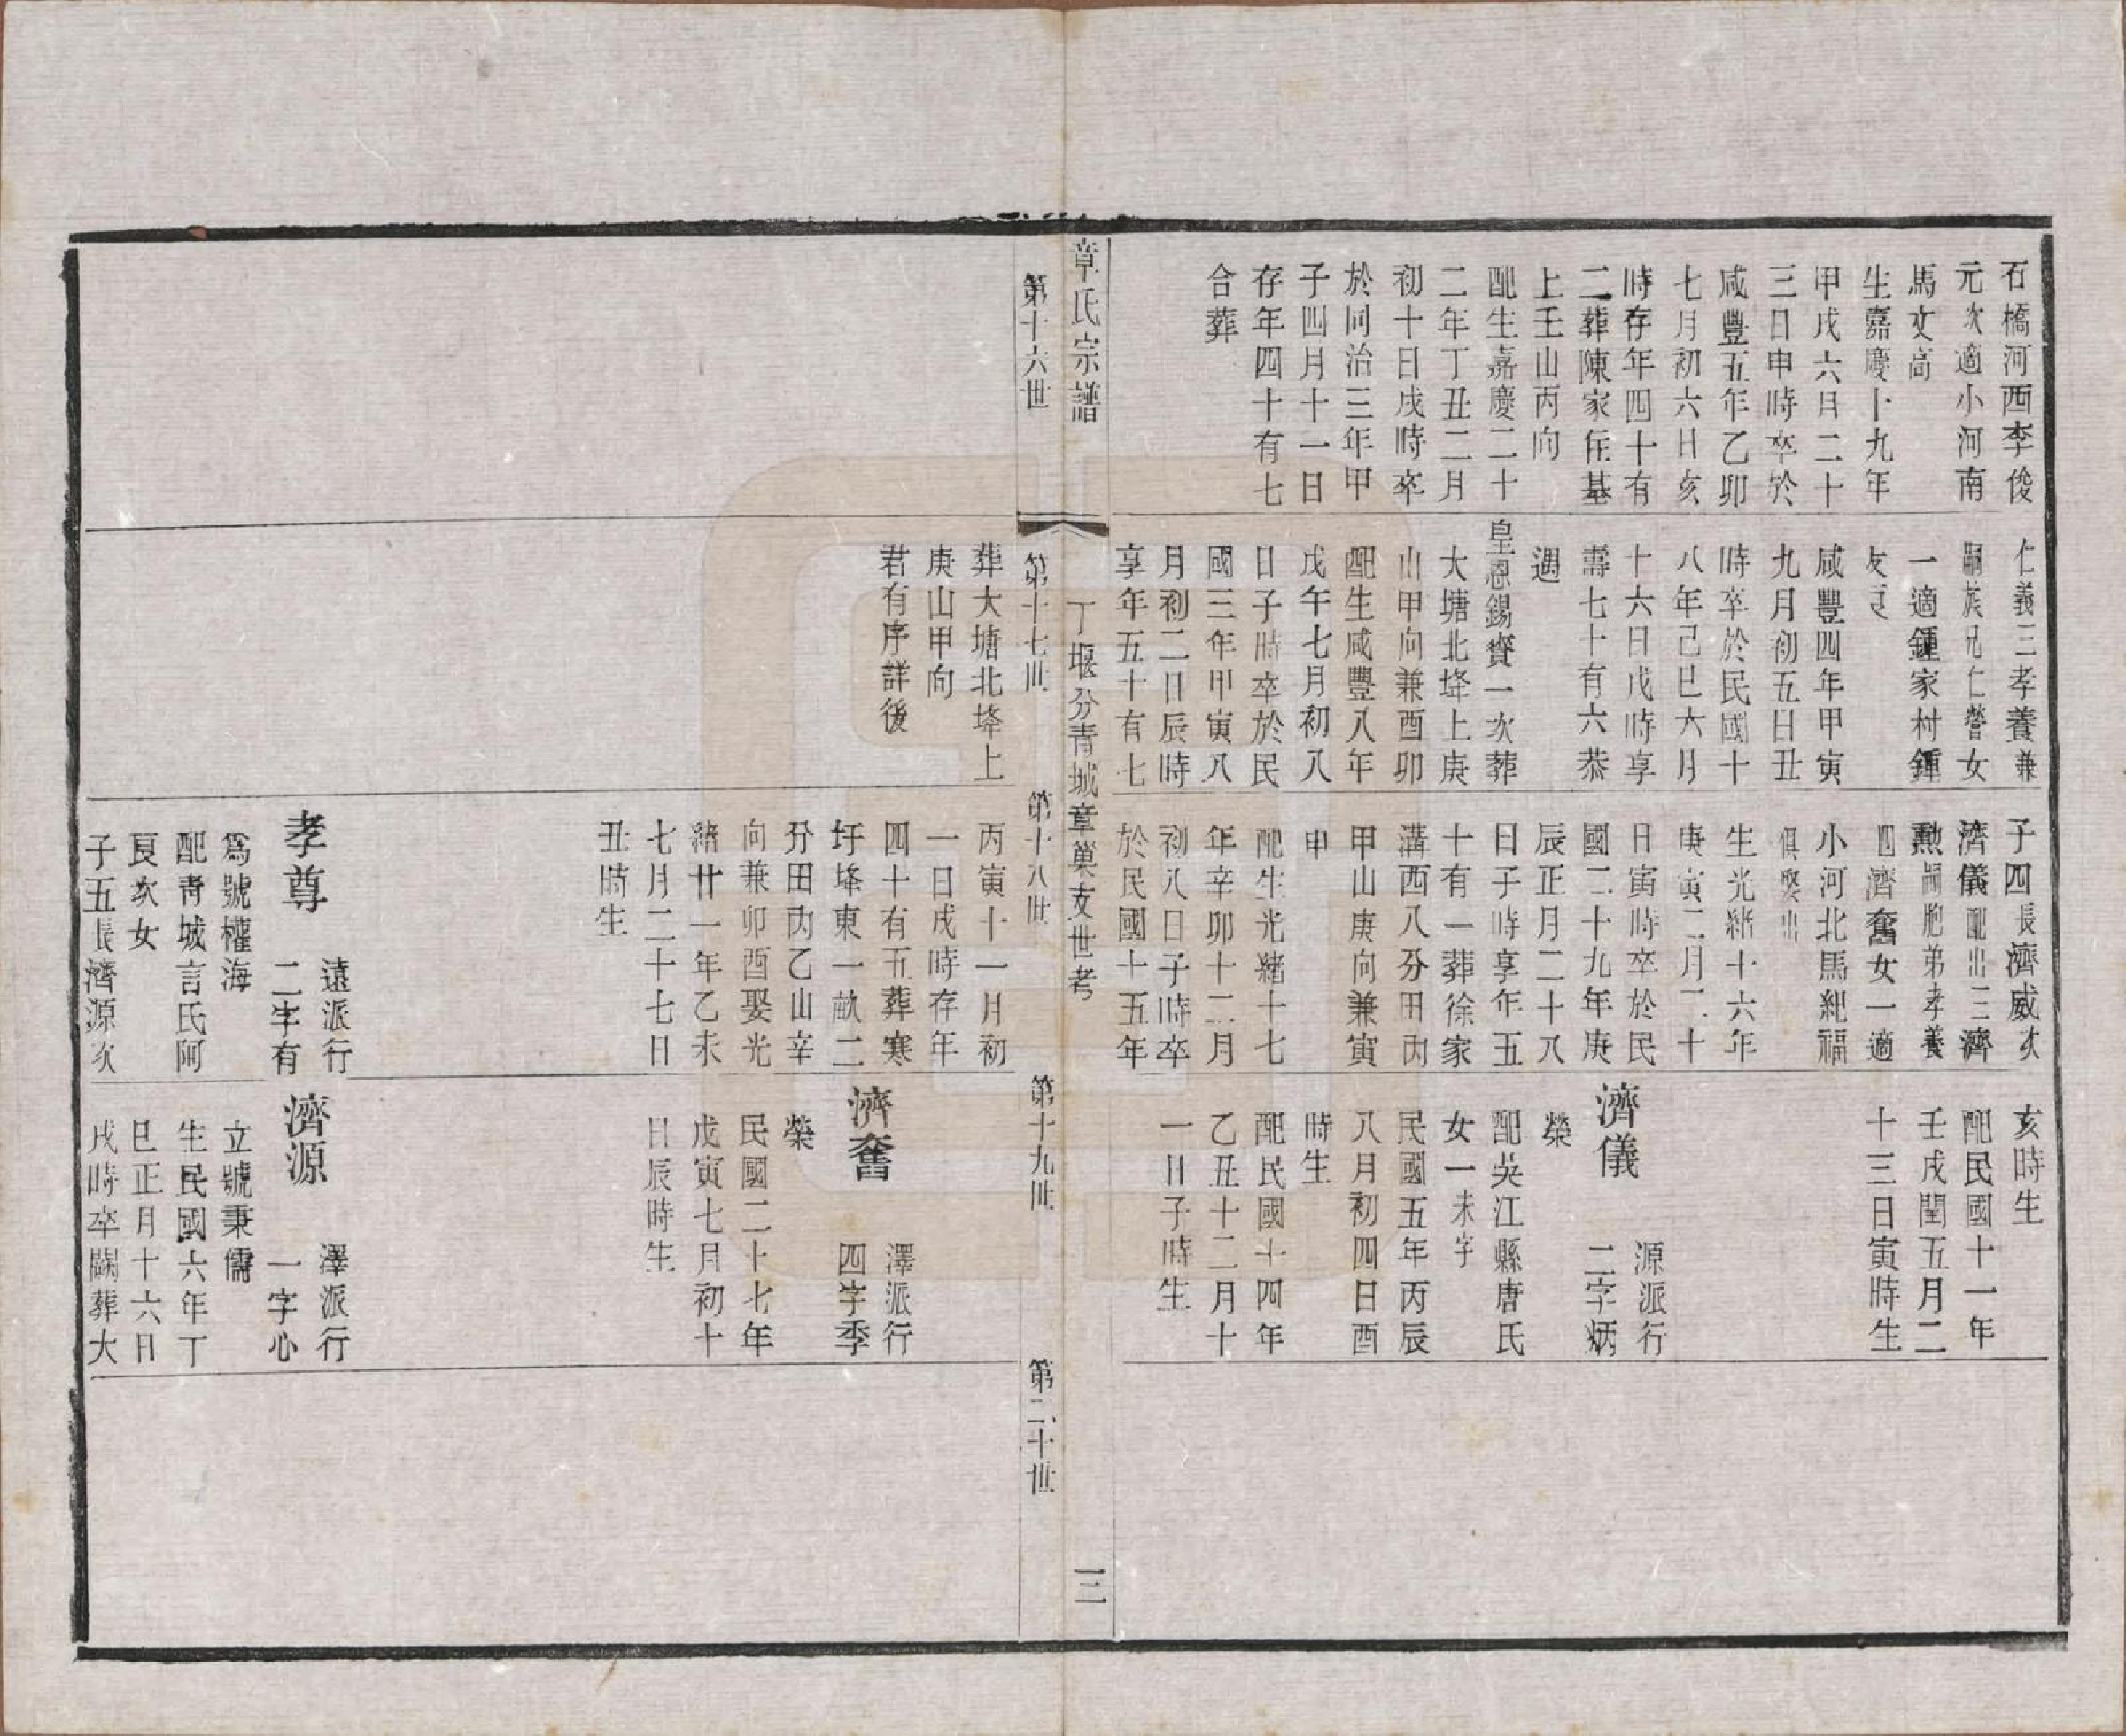 石橋河西李俊
元次適小河南
馬文高
生嘉慶十九年
甲戌六月二十
三日申時卒於
咸豐五年乙卯
七月初六日亥
時存年四十有
二葬陳家任基
上壬山丙向
配生嘉慶二十
二年丁丑二月
初十日戌時卒
於同治三年甲
子四月十一日
存年四十有七
合葬
仁義三孝養兼
嗣族兄仁譽女
一適鍾家村鍾
友
咸豐四年甲寅
九月初五日丑
時卒於民國十
八年己巳六月
十六日戌時享
壽七十有六恭
遇
皇恩錫賚一次葬
大塘北埄上庚
山甲向兼酉卯
配生咸豐八年
戊午七月初八
日子時卒於民
國三年甲寅八
月初二日辰時
享年五十有七
子四長濟威次
濟儀配出三濟
勲嗣胞弟孝養
四濟奮女一適
小河北馬紀福
俱娶出
生光緒十六年
庚寅二月二十
日寅時卒於民
國二十九年庚
辰正月二十八
日子時享年五
十有一葬徐家
溝西八分田內
甲山庚向兼寅
申
配生光緒十七
年辛卯十二月
初八日子時卒
於民國十五年
亥時生
配民國十一年
壬戌閏五月二
十三日寅時生
濟儀
源派行
二字炳
榮
配吳江縣唐氏
女一未字
民國五年丙辰
八月初四日酉
時生
配民國十四年
乙丑十二月十
一日子時生
章氏宗譜
丁堰分青城章巢支世考
三
第十六世
第十七世
第十八世
第十九世
第二十世
葬大塘北埄上
庚山甲向
君有序詳後
丙寅十一月初
一日戌時存年
四十有五葬寒
圩埄東一畝二
分田內乙山辛
向兼卯酉娶光
緒廿一年乙未
七月二十七日
丑時生
孝尊
遠派行
二字有
爲號權海
配青城言氏阿
艮次女
子五長濟源次
濟奮
澤派行
四字季
榮
民國二十七年
戊寅七月初十
日辰時生
濟源
澤派行
一字心
立號秉儒
生民國六年丁
巳正月十六日
戌時卒闕葬大